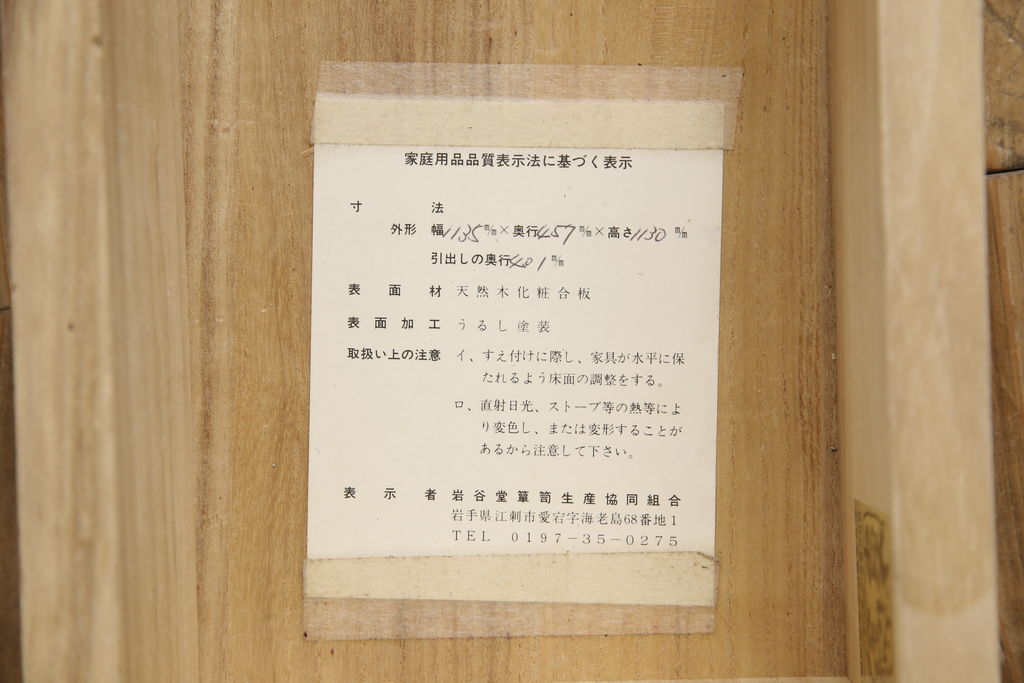 家庭用品品質表示法に基づく表示
寸法
外形 幅1135㎜×奥行457㎜×高さ1130㎜
引出しの奥行401㎜
表面材 天然木化粧合板
表面加工 うるし塗装
取扱い上の注意 イ、すえ付けに際し、家具が水平に保
たれるよう床面の調整をする。
ロ、直射日光、ストーブ等の熱等によ
り変色し、または変形することが
あるから注意して下さい。
表示者 岩谷堂簞笥生産協同組合
岩手県江刺市愛宕字海老島68番地1
TEL 0197-35-0275